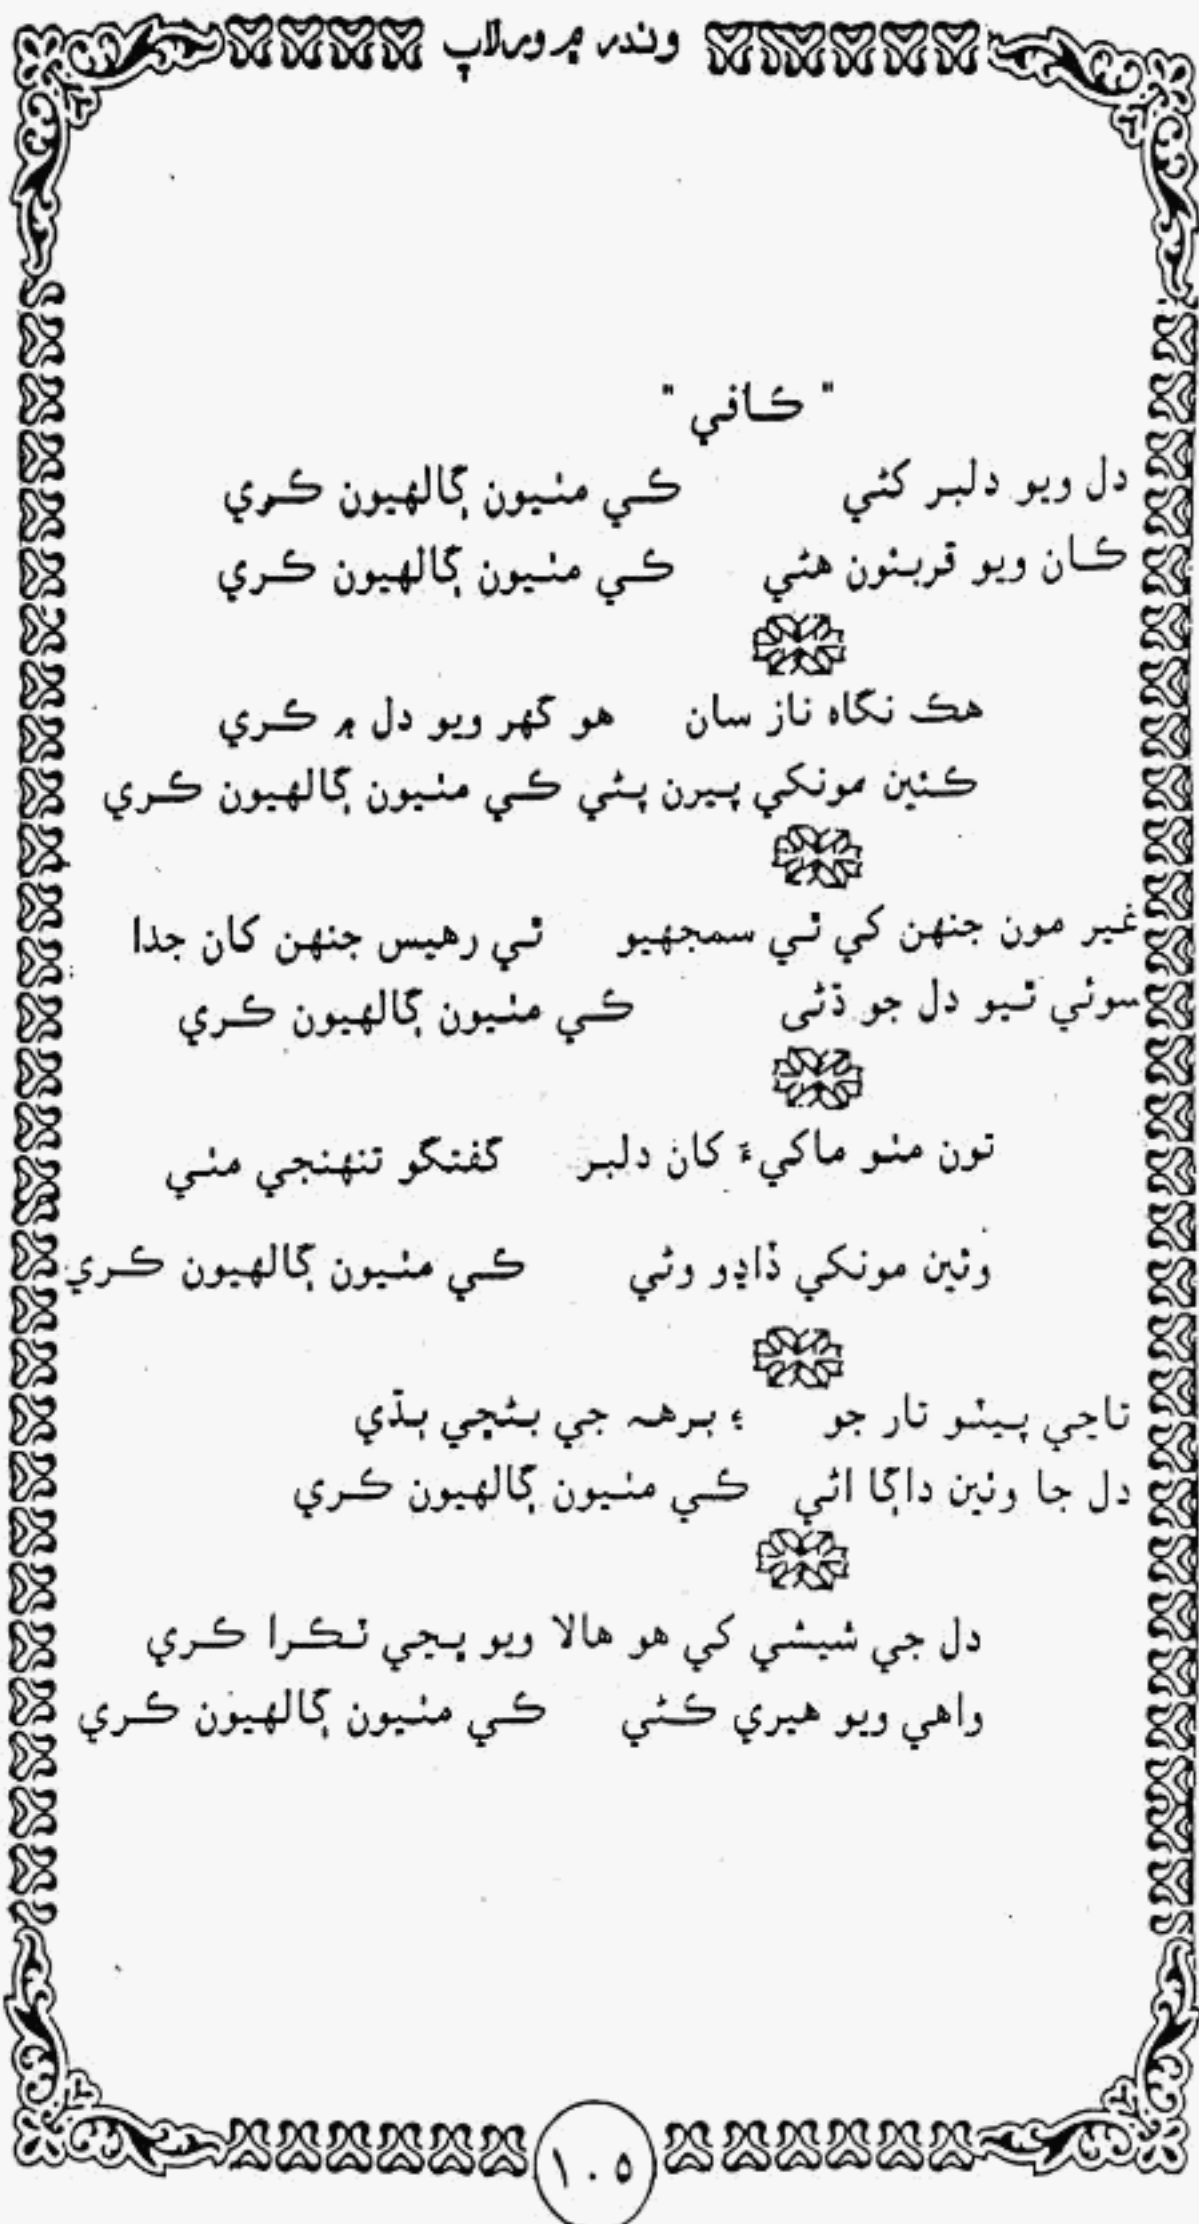 وندر ۾ ورلاپ
" ڪافي "
دل ويو دلبر کڻي ڪي مٺيون ڳالهيون ڪري
ڪان ويو قربئون هڻي ڪي مٺيون ڳالهيون ڪري
هڪ نگاه ناز سان هو گهر ويو دل ۾ ڪري
ڪئين مونکي پيرن پڻي ڪي مٺيون ڳالهيون ڪري
غير مون جنهن کي ٿي سمجهيو ٿي رهيس جنهن کان جدا
سوئي ٿيو دل جو ڌڻي ڪي مٺيون ڳالهيون ڪري
تون مٺو ماکيءَ کان دلبر گفتگو تنهنجي مٺي
وئين مونکي ڏاڍو وڻي ڪي مٺيون ڳالهيون ڪري
تاڃي پيٽو تار جو ۽ برهه جي بڻجي ٻڌي
دل جا وئين ڌاڳا اڻي ڪي مٺيون ڳالهيون ڪري
دل جي شيشي کي هو هالا ويو ڀڃي ٽڪرا ڪري
واهي ويو هيري ڪڻي ڪي مٺيون ڳالهيون ڪري
١٠٥